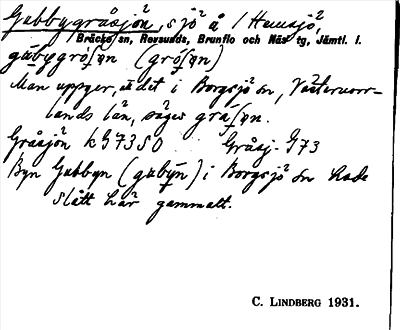 Gubbygråsjön, sjö å / Hunsjö,
Bräcke sn, Revsunds, Brunflo och Näs tg, Jämtl. l.
gŭbygrŏʃɐn (grŏʃɐn)
Man uppger, at det i Borgsjö sn, Västernorr-
lands län, säges graʃɐn.
Gråsjön k G7350 Gråsj. G73
Byn Gubbyn (gŭbyn) i Borgsjö sn hade
slått här gammalt.
C. LINDBERG 1931.